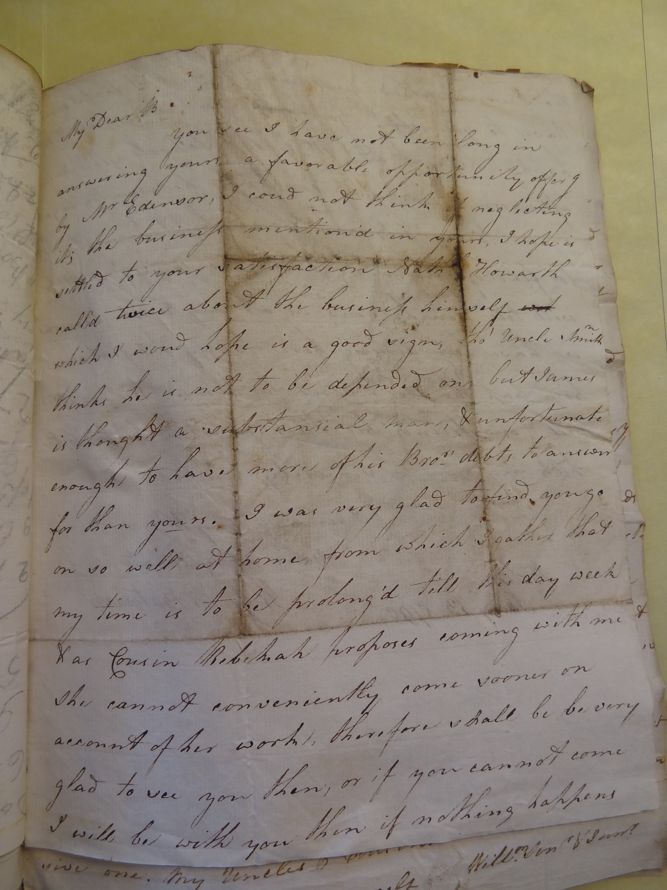 My Dear B
you see I have not been long in
answering yours a favorable opportunity offer'g
by Mr Edensor, I coud not think of neglecting
it, the business mention'd in yours, I hope is
settled to your satisfaction Nath.l Howarth
calld twice about the business himself
which I woud hope is a good sign, tho' Uncle Smith
thinks he is not to be depended on, but James
is thought a substansial man, & unfortunate
enough to have more of his Bro.rs debts to answer
for than yours. I was very glad to find you go
on so well at home from which I gather that
my time is to be prolong'd till this day week
& as Cousin Rebekah proposes coming with me &
she cannot conveniently come sooner on
account of her work, therefore shall be be very
glad to see you then, or if you cannot come
I will be with you then if nothing happens
give one. My Uncles
Will.m